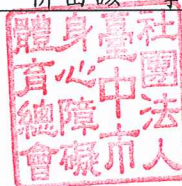 社團法人
臺中市
身心障礙
體育總會